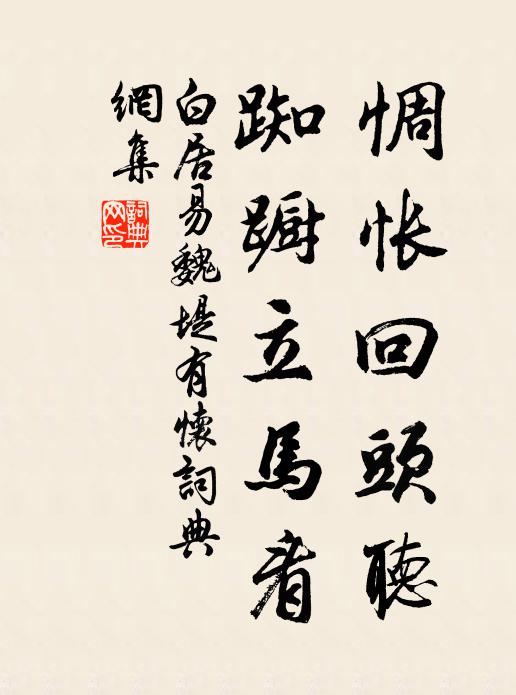 惆怅回頭聴
踟蹰立馬看
白居易魏堤有懷詞典
網集
詞典
网印